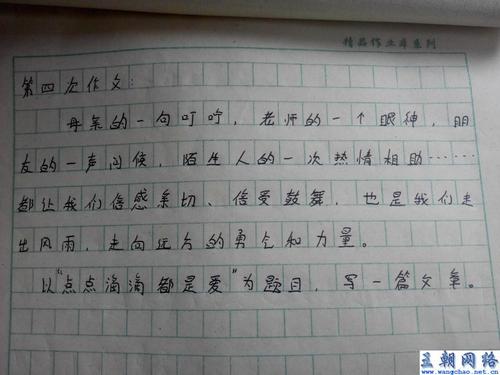 精品作业库系列
第四次作文：
母亲的一句叮咛，老师的一个眼神，朋
友的一声问候，陌生人的一次热情相助……
都让我们倍感亲切、倍受鼓舞，也是我们走
出风雨，走向远方的勇气和力量。
以“点点滴滴都是爱”为题目，写一篇文章。
王朝网络
www.wangchao.net.cn